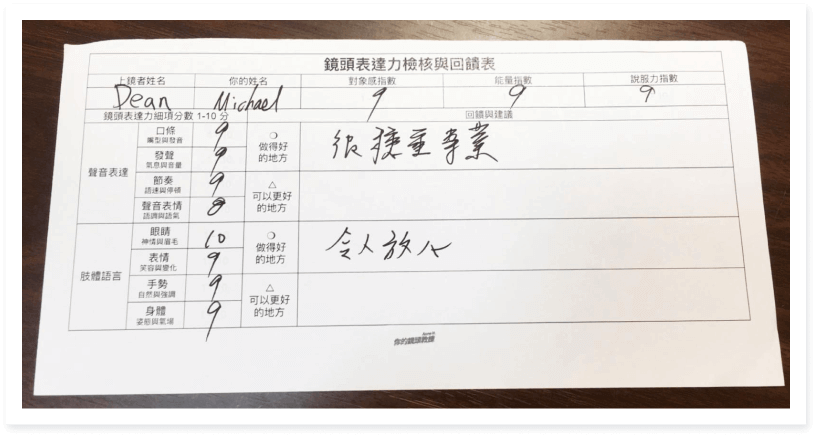 鏡頭表達力檢核與回饋表
上鏡者姓名 你的姓名 對象感指數 能量指數 說服力指數
Dean Michael 9 9 9
鏡頭表達力細項分數 1-10 分 回饋與建議
聲音表達
口條 9
嘴型與發音
發聲 9
氣息與音量
節奏 9
語速與停頓
聲音表情 8
語調與語氣
○
做得好
的地方
很穩重專業
△
可以更好
的地方
肢體語言
眼睛 10
神情與眉毛
表情 9
笑容與變化
手勢 9
自然與強調
身體 9
姿態與氣場
○
做得好
的地方
令人放心
△
可以更好
的地方
你的鏡頭教練